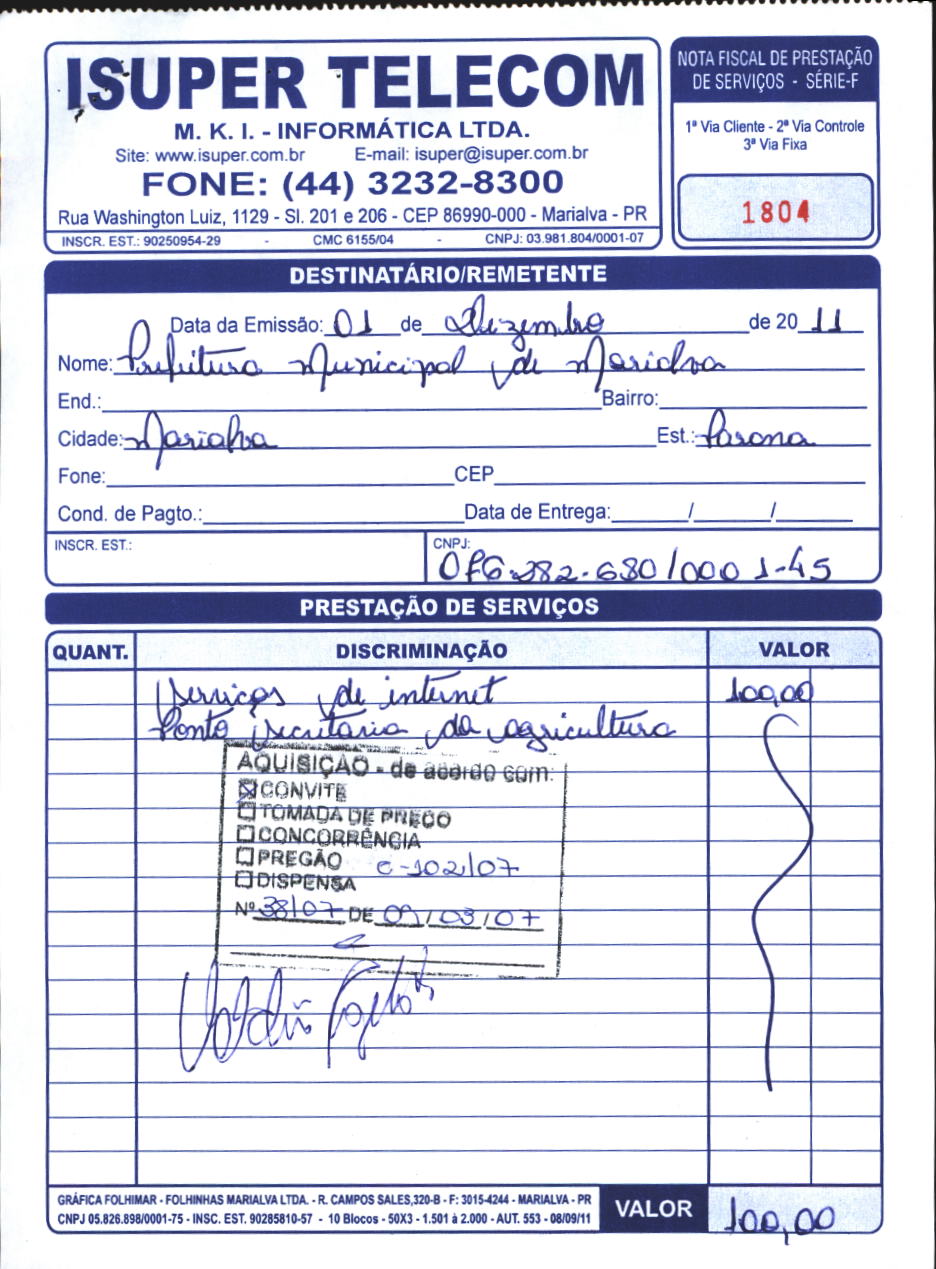 ISUPER TELECOM
M. K. I. - INFORMÁTICA LTDA.
Site: www.isuper.com.br E-mail: isuper@isuper.com.br
FONE: (44) 3232-8300
Rua Washington Luiz, 1129 - Sl. 201 e 206 - CEP 86990-000 - Marialva - PR
INSCR. EST.: 90250954-29 - CMC 6155/04 - CNPJ: 03.981.804/0001-07
NOTA FISCAL DE PRESTAÇÃO
DE SERVIÇOS - SÉRIE-F
1ª Via Cliente - 2ª Via Controle
3ª Via Fixa
1804
DESTINATÁRIO/REMETENTE
Data da Emissão: 01 de Dezembro de 20 11
Nome: Prefeitura Municipal de Marialva
End.: Bairro:
Cidade: Marialva Est.: Parana
Fone: CEP
Cond. de Pagto.: Data de Entrega: / /
INSCR. EST.: CNPJ:
076.282.680/0001-45
PRESTAÇÃO DE SERVIÇOS
QUANT. DISCRIMINAÇÃO VALOR
Serviços de internet 100,00
Ponto secretaria da agricultura
AQUISIÇÃO - de acordo com:
☒ CONVITE
☐ TOMADA DE PREÇO
☐ CONCORRÊNCIA
☐ PREGÃO C-102/07
☐ DISPENSA
Nº 38/07 DE 09/03/07
GRÁFICA FOLHIMAR - FOLHINHAS MARIALVA LTDA. - R. CAMPOS SALES,320-B - F: 3015-4244 - MARIALVA - PR
CNPJ 05.826.898/0001-75 - INSC. EST. 90285810-57 - 10 Blocos - 50X3 - 1.501 à 2.000 - AUT. 553 - 08/09/11
VALOR 100,00